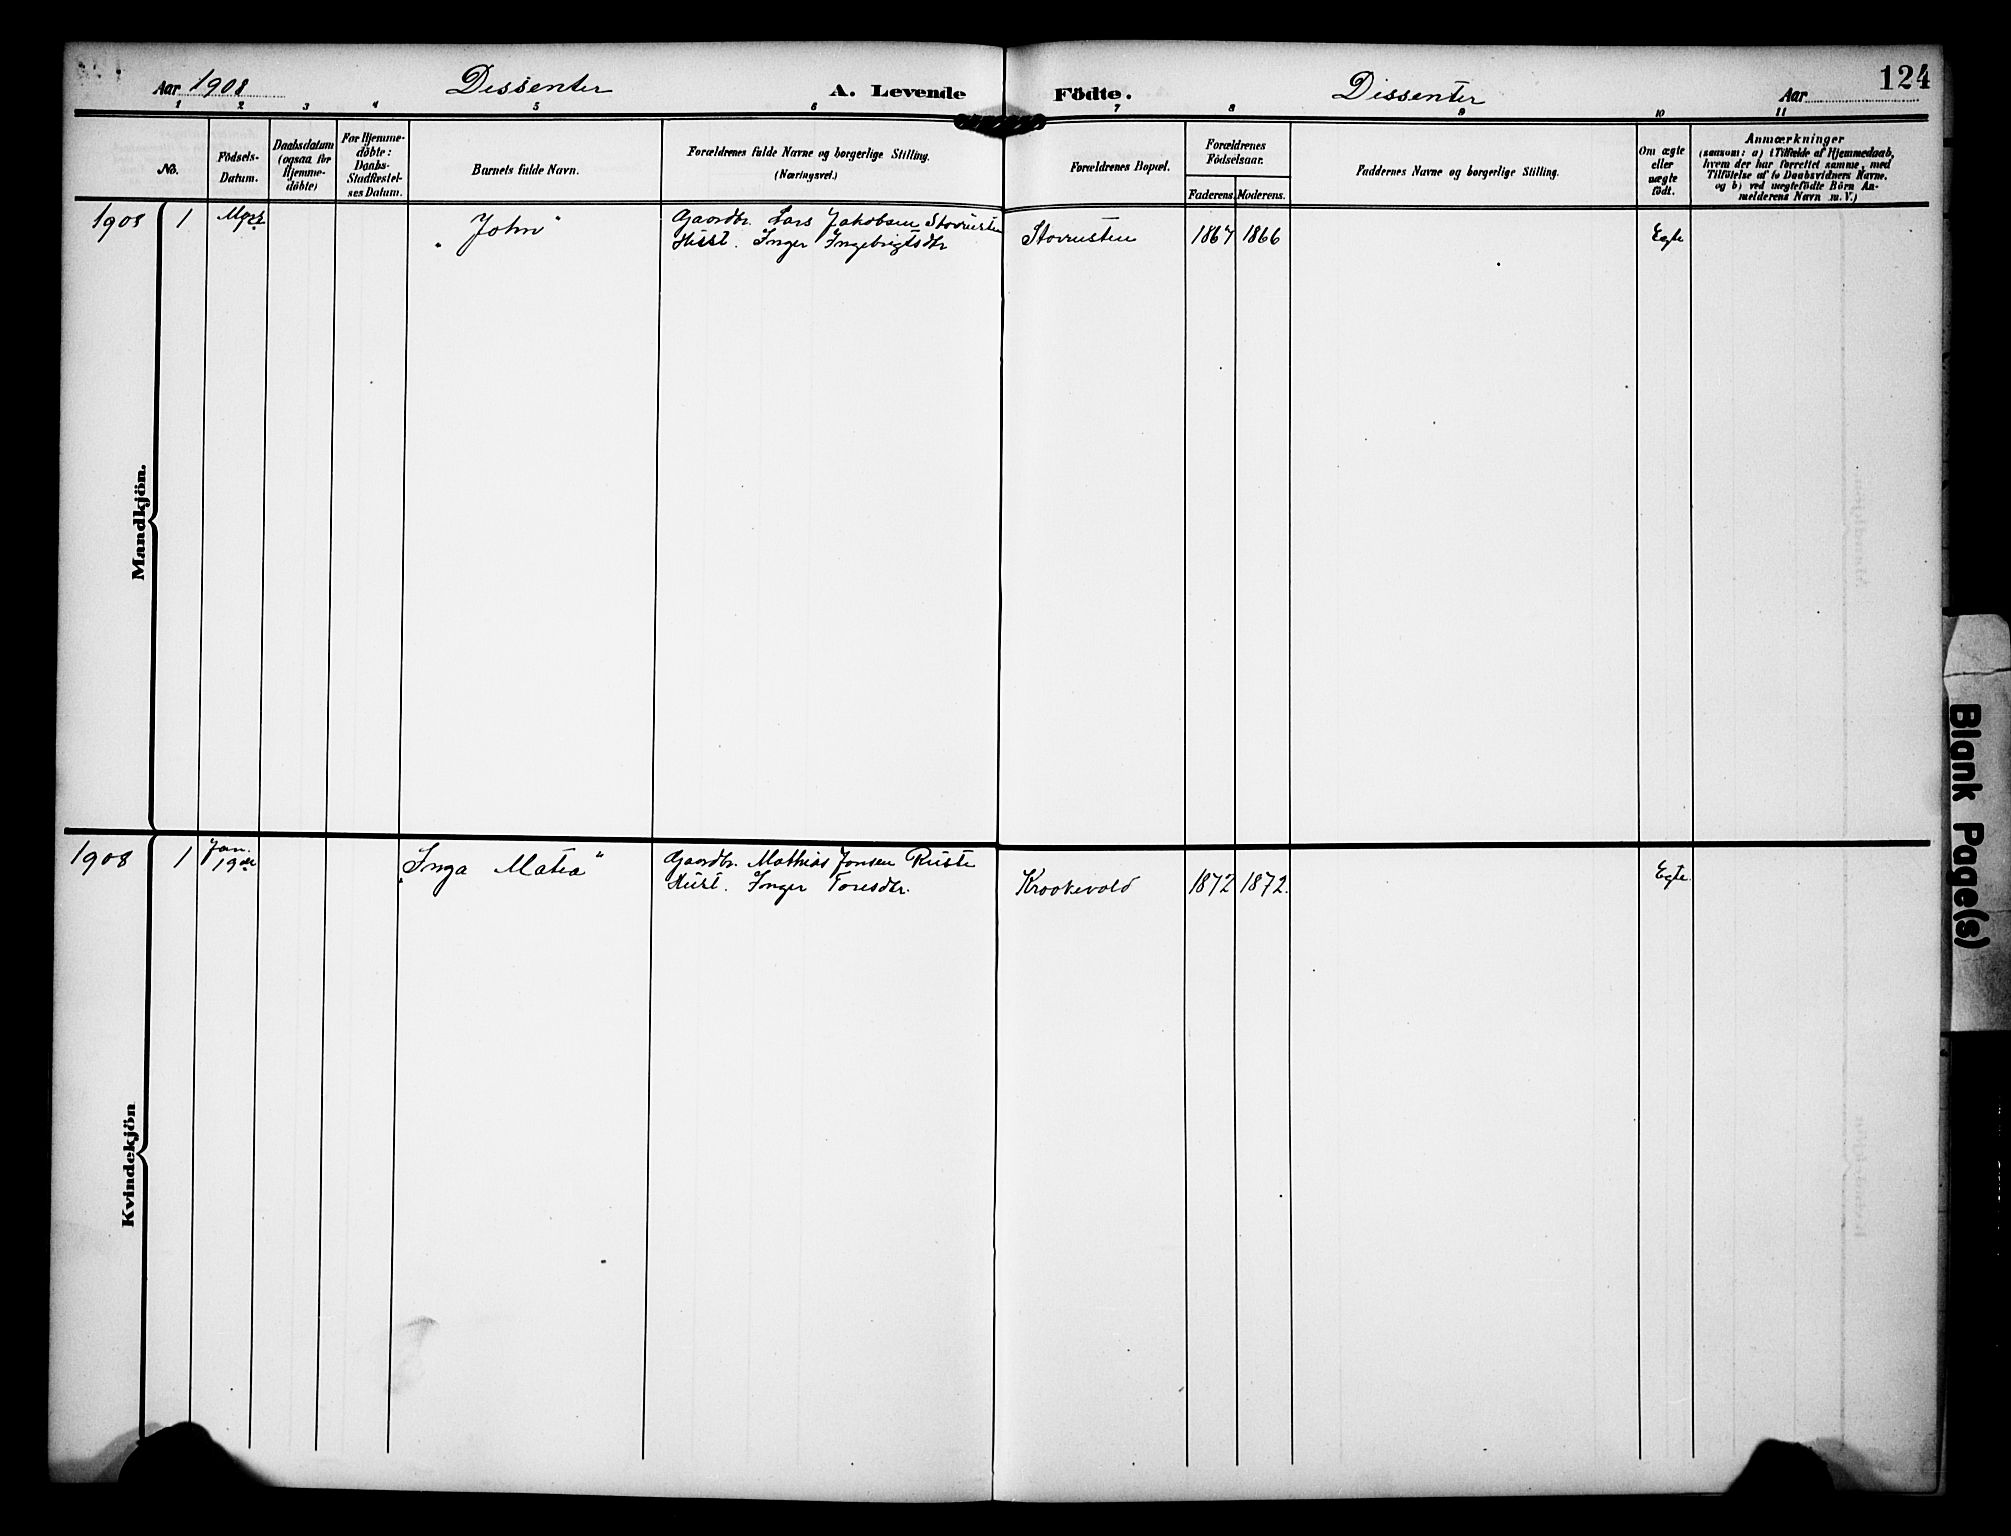 Aar 1908 Dissenter A. Levende Födte. Dissenter Aar 124
1 2 3 4 5 6 7 8 9 10 11
No.
Födsels-
Datum.
Daabsdatum
(ogsaa for
Hjemme-
döbte)
For Hjemme-
döbte:
Daabs-
Stadfæstel-
ses Datum.
Barnets fulde Navn.
Forældrenes fulde Navne og borgerlige Stilling.
(Næringsvei.)
Forældrenes Bopæl.
Forældrenes
Födselsaar.
Faderens. Moderens.
Faddernes Navne og borgerlige Stilling.
Om ægte
eller
uægte
födt.
Anmærkninger
(saasom: a) i Tilfælde af Hjemmedaab,
hvem der har forrettet samme, med
Tilföielse af to Daabsvidners Navne.
og b) ved uægtefödte Börn An-
melderens Navn m. V.)
Mandkjön.
1908 1 „John" Gaardbr. Lars Jakobsen Stovrusten Stovrusten 1867 1866 Egte
Hust. Inger Ingebrigtsdtr
Kvindekjön
1908 1 Jan. „Inga Matea" Gaardbr. Mathias Jonsen Ruste Krookevold 1872 1872. Egte.
19de Hust. Inger Toresdtr.
Blank Page(s)